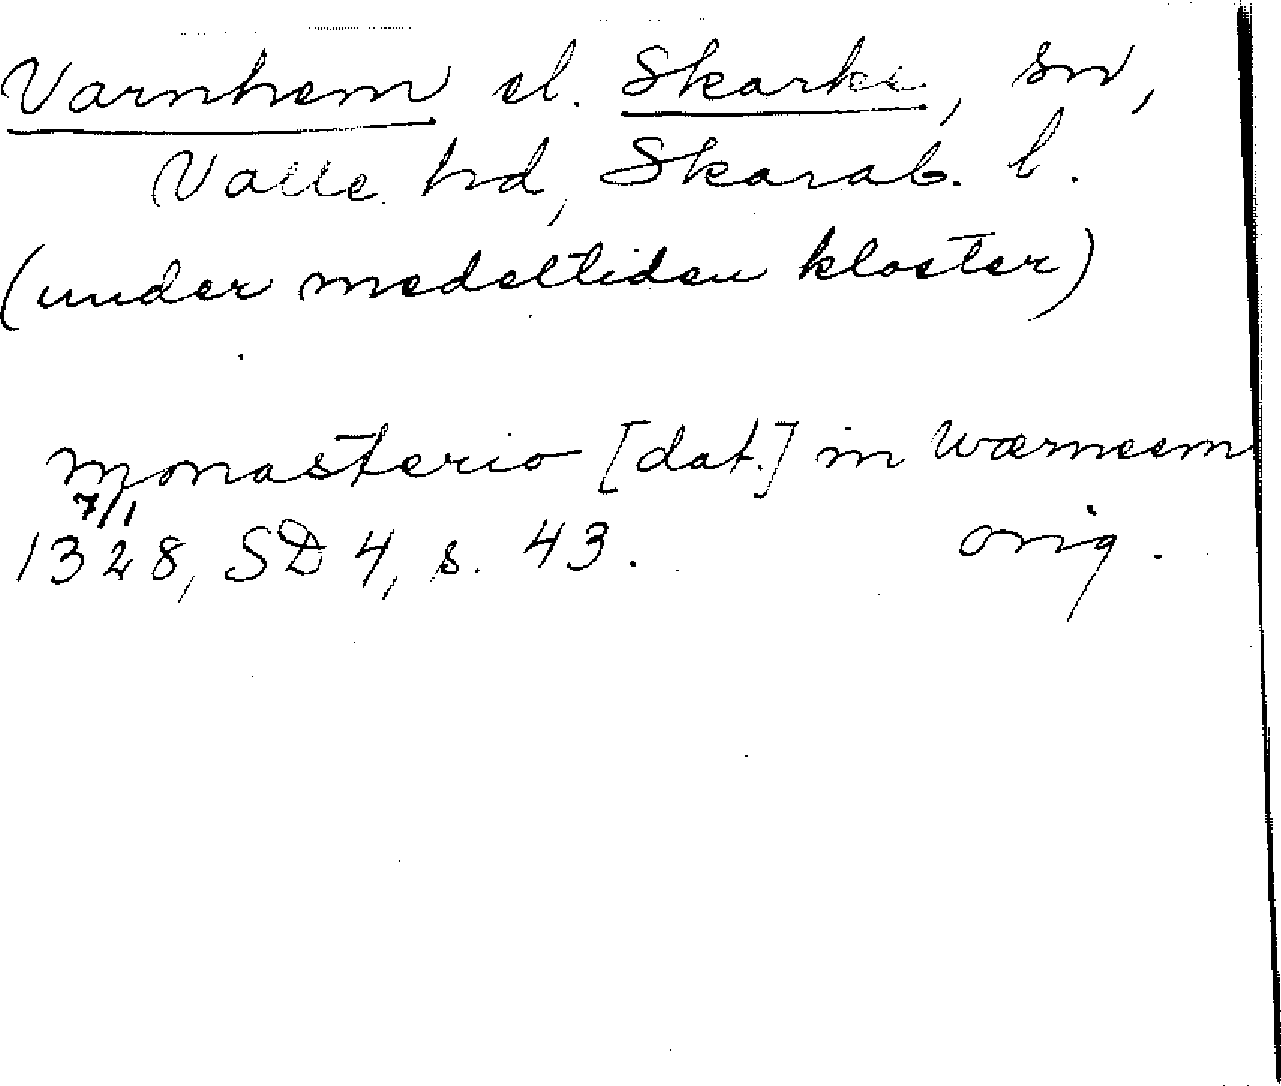 Varnhem el. Skarke, sn,
Valle hd, Skarab. l.
(under medeltiden kloster)
monasterio [dat.] in Wærneem
7/1
1328, SD 4, s. 43. orig.